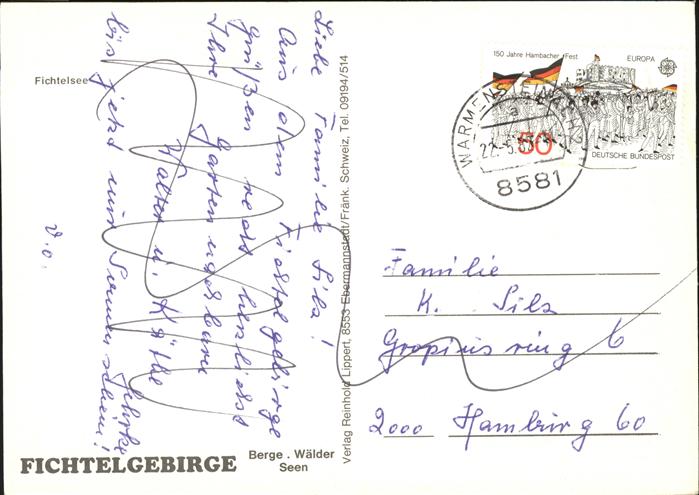 Liebe Familie Silz!
Aus dem Fichtelgebirge
grüßen recht herzlichst
Ihre Gartennachbarn
Walter u. Käthe
bis jetzt nur Sonnenschein!
Fichtelsee
FICHTELGEBIRGE
Berge . Wälder
Seen
Verlag Reinhold Lippert, 8553 Ebermannstadt/Fränk. Schweiz, Tel. 09194/514
150 Jahre Hambacher Fest
EUROPA
50
DEUTSCHE BUNDESPOST
WARMENSTEINACH
a
22.-5.
8581
Familie
K. Silz
Gropiusring 6
2000 Hamburg 60